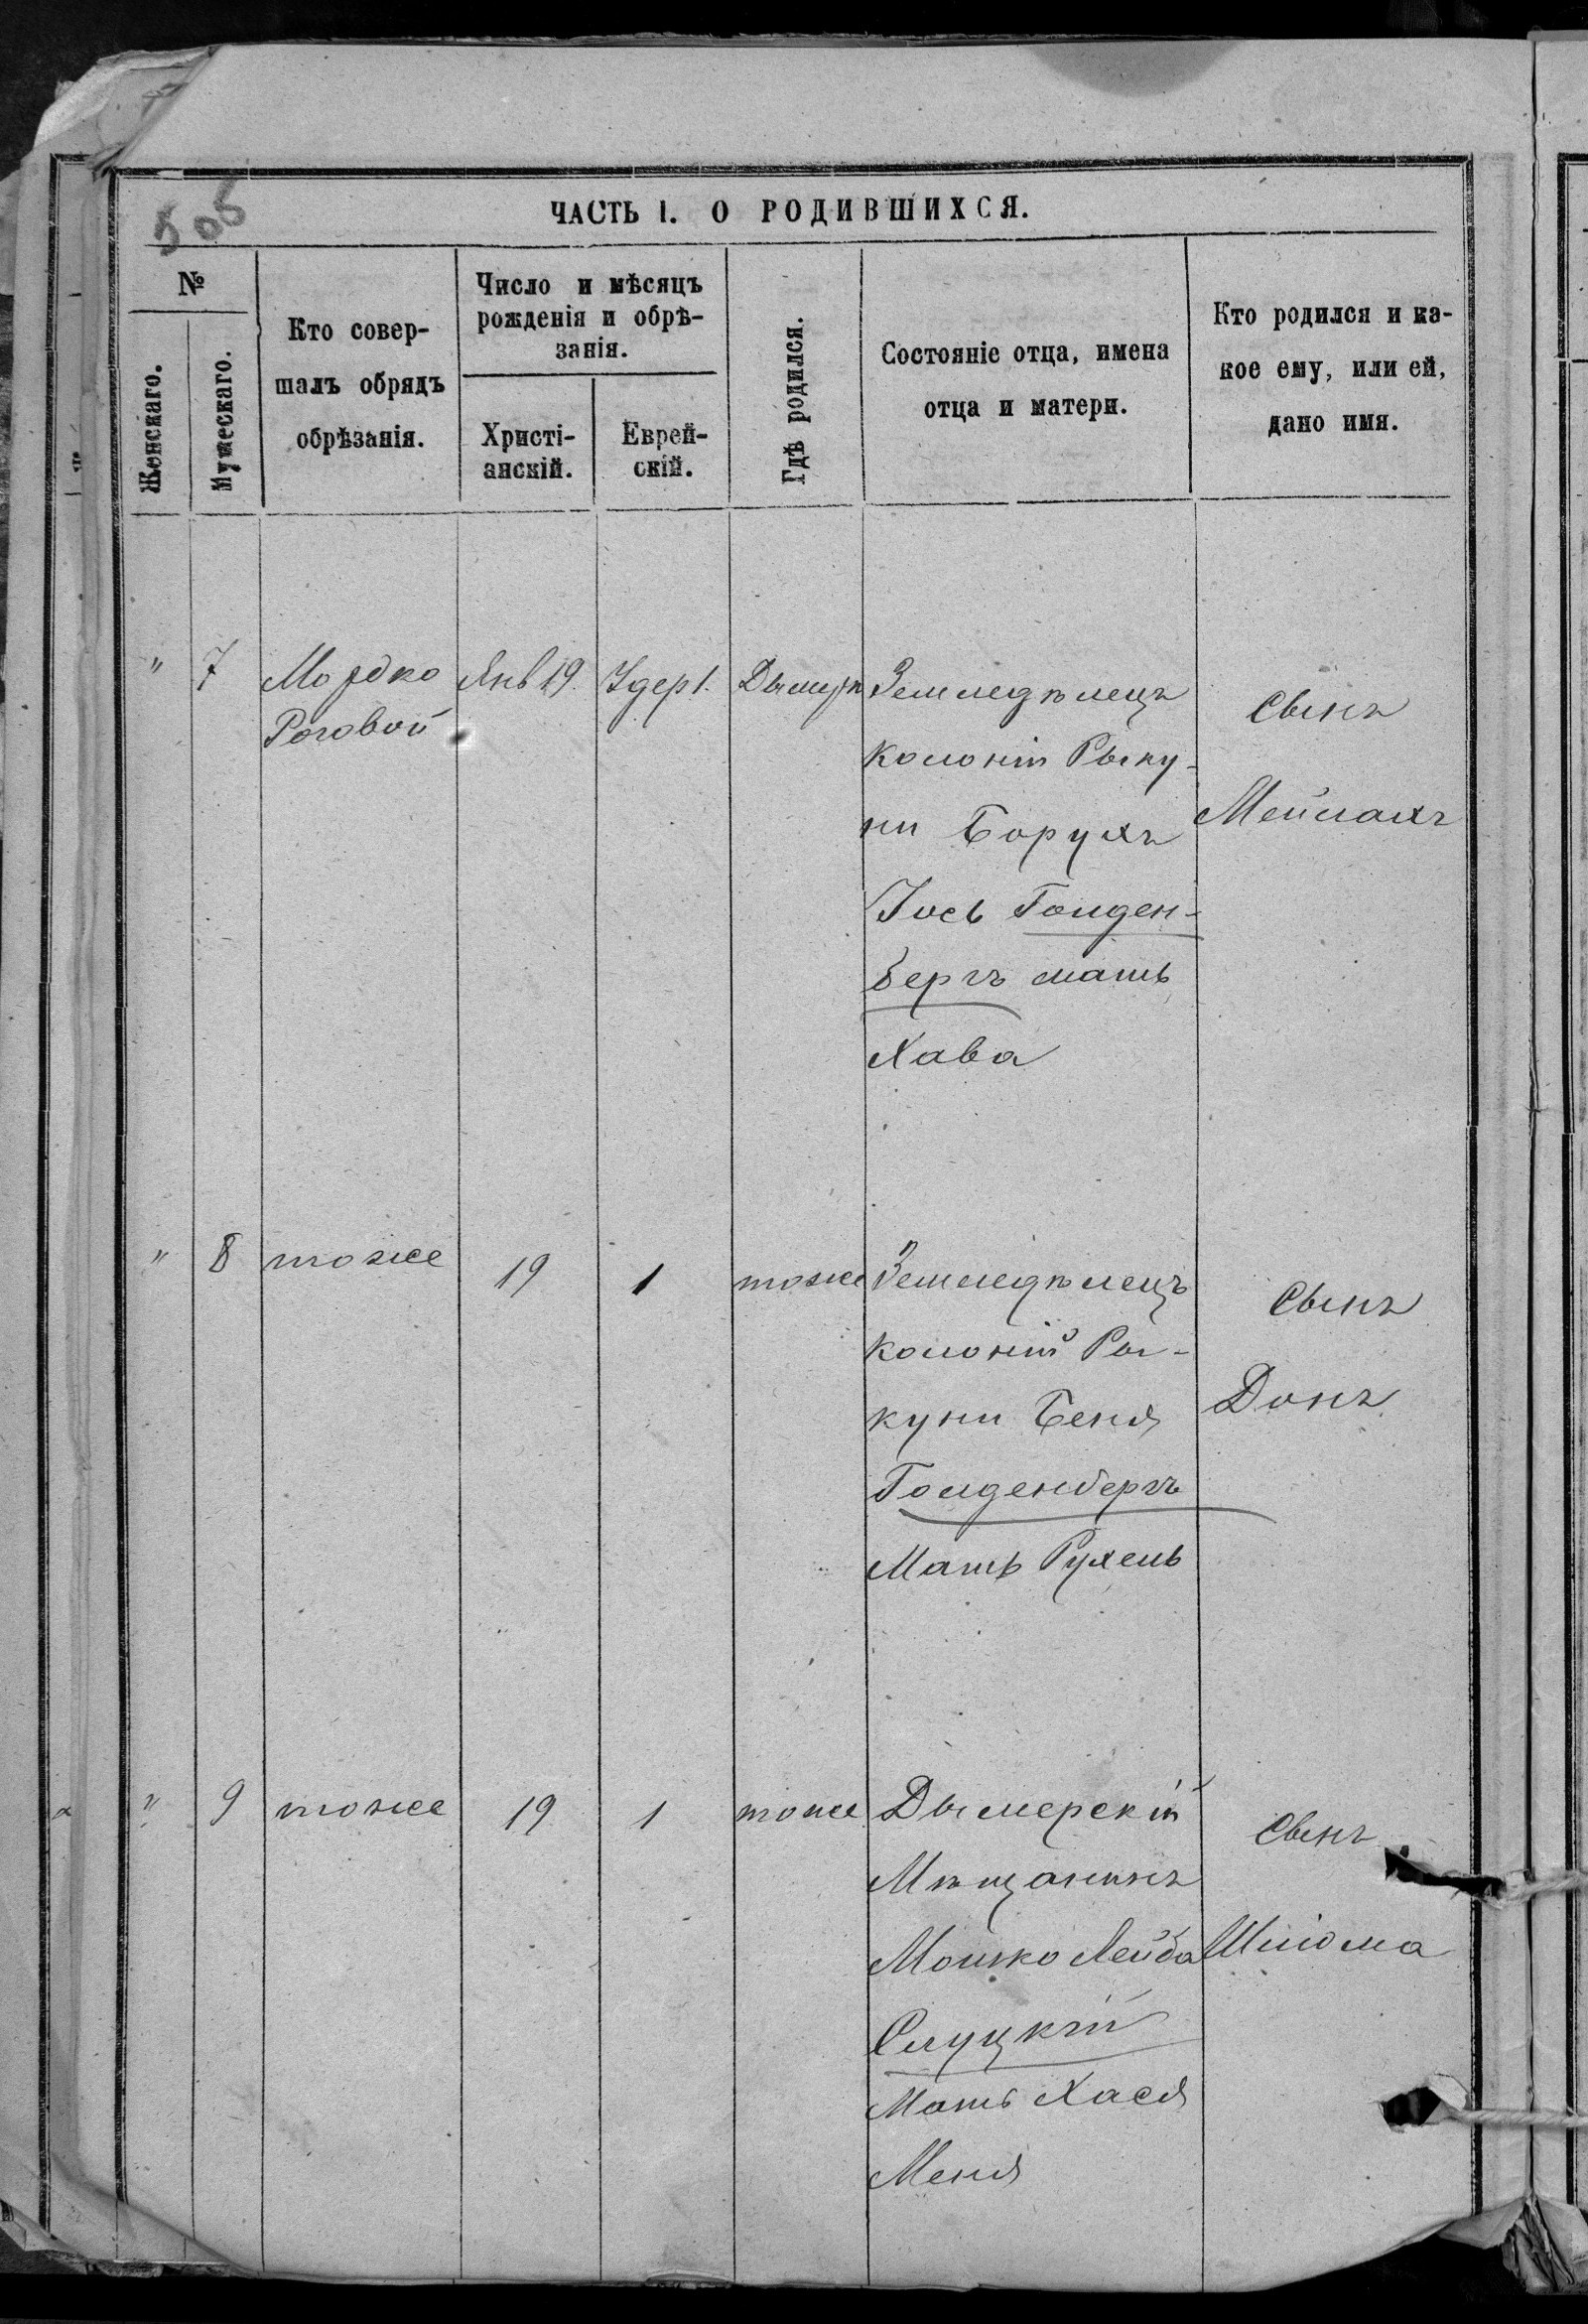 505
ЧАСТЬ I. О РОДИВШИХСЯ.
№
Женскаго.
Мужескаго.
Кто совер-
шалъ обрядъ
обрѣзанія.
Число и мѣсяцъ
рожденія и обрѣ-
занія.
Христі-
анскій.
Еврей-
скій.
Гдѣ родился.
Состояніе отца, имена
отца и матери.
Кто родился и ка-
кое ему, или ей,
дано имя.
" 7 Мордко Янв 19. Удер 1. Дымеръ Земледѣлецъ
Роговой
колоніи Рыку-
ни Борухъ
Іось Голден-
бергъ мать
Хава
Сынъ
Мейлахъ
" 8 тоже 19 1 тоже Земледѣлецъ
колоній Ры-
куни Беня
Голденбергъ
Мать Рухель
Сынъ
Донъ
" 9 тоже 19 1 тоже Дымерскій
Мѣщанинъ
Мошко Лейба
Слуцкій
Мать Хася
Меня
Сынъ
Шліома